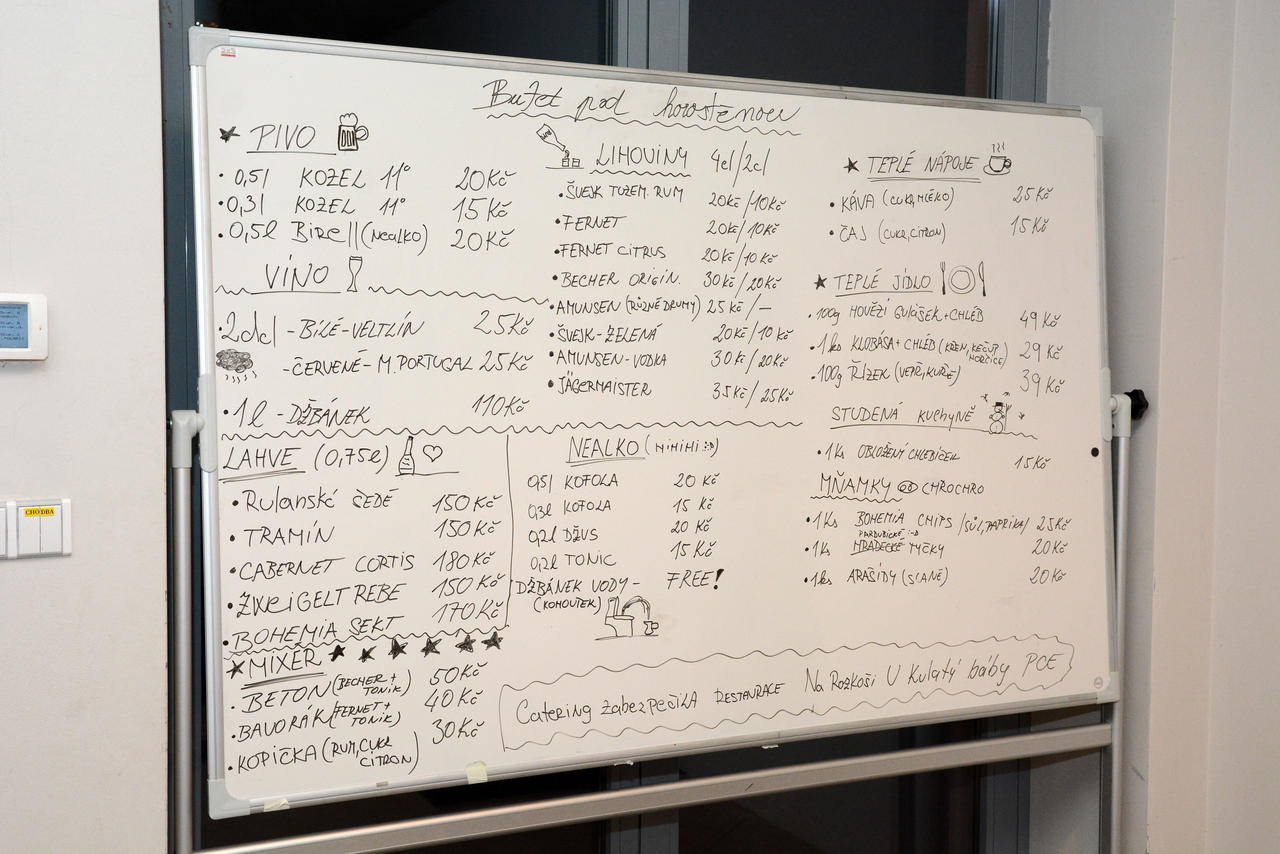 Bufet pod horostěnou
★ PIVO
• 0,5l KOZEL 11° 20Kč
• 0,3l KOZEL 11° 15Kč
• 0,5l Birell (Nealko) 20Kč
VÍNO
• 2dcl - BÍLÉ - VELTLÍN 25Kč
- ČERVENÉ - M. PORTUGAL 25Kč
• 1l - DŽBÁNEK 110Kč
LAHVE (0,75l)
• Rulanské ŠEDÉ 150Kč
• TRAMÍN 150Kč
• CABERNET CORTIS 180Kč
• ZWEIGELTREBE 150Kč
• BOHEMIA SEKT 170Kč
★ MIXÉR ★ ★ ★ ★ ★ ★
• BETON (BECHER + TONIK) 50Kč
• BAVORÁK (FERNET + TONIK) 40Kč
• KOPIČKA (RUM, CUKR CITRON) 30Kč
LIHOVINY 4cl/2cl
• ŠVEJK TUZEM. RUM 20Kč/10Kč
• FERNET 20Kč/10Kč
• FERNET CITRUS 20Kč/10Kč
• BECHER ORIGIN. 30Kč/20Kč
• AMUNSEN (RŮZNÉ DRUHY) 25Kč/—
• ŠVEJK - ZELENÁ 20Kč/10Kč
• AMUNSEN - VODKA 30Kč/20Kč
• JÄGERMAISTER 35Kč/25Kč
NEALKO (HIHIHI :-D)
0,5l KOFOLA 20Kč
0,3l KOFOLA 15Kč
0,2l DŽUS 20Kč
0,2l TONIC 15Kč
DŽBÁNEK VODY - FREE!
(KOHOUTEK)
★ TEPLÉ NÁPOJE
• KÁVA (CUKR, MLÉKO) 25Kč
• ČAJ (CUKR, CITRON) 15Kč
★ TEPLÉ JÍDLO
• 100g HOVĚZÍ GULÁŠEK + CHLÉB 49Kč
• 1ks KLOBÁSA + CHLÉB (KŘEN, KEČUP, HOŘČICE) 29Kč
• 100g ŘÍZEK (VEPŘ, KUŘE) 39Kč
STUDENÁ kuchyně
• 1ks OBLOŽENÝ CHLEBÍČEK 15Kč
MŇAMKY CHROCHRO
• 1ks BOHEMIA CHIPS /SŮL, PAPRIKA/ 25Kč
PARDUBICKÉ :-D
• 1ks HRADECKÉ TYČKY 20Kč
• 1ks ARAŠÍDY (SLANÉ) 20Kč
Catering zabezpečila RESTAURACE Na Rozkoši U Kulatý báby PCE
CHODBA